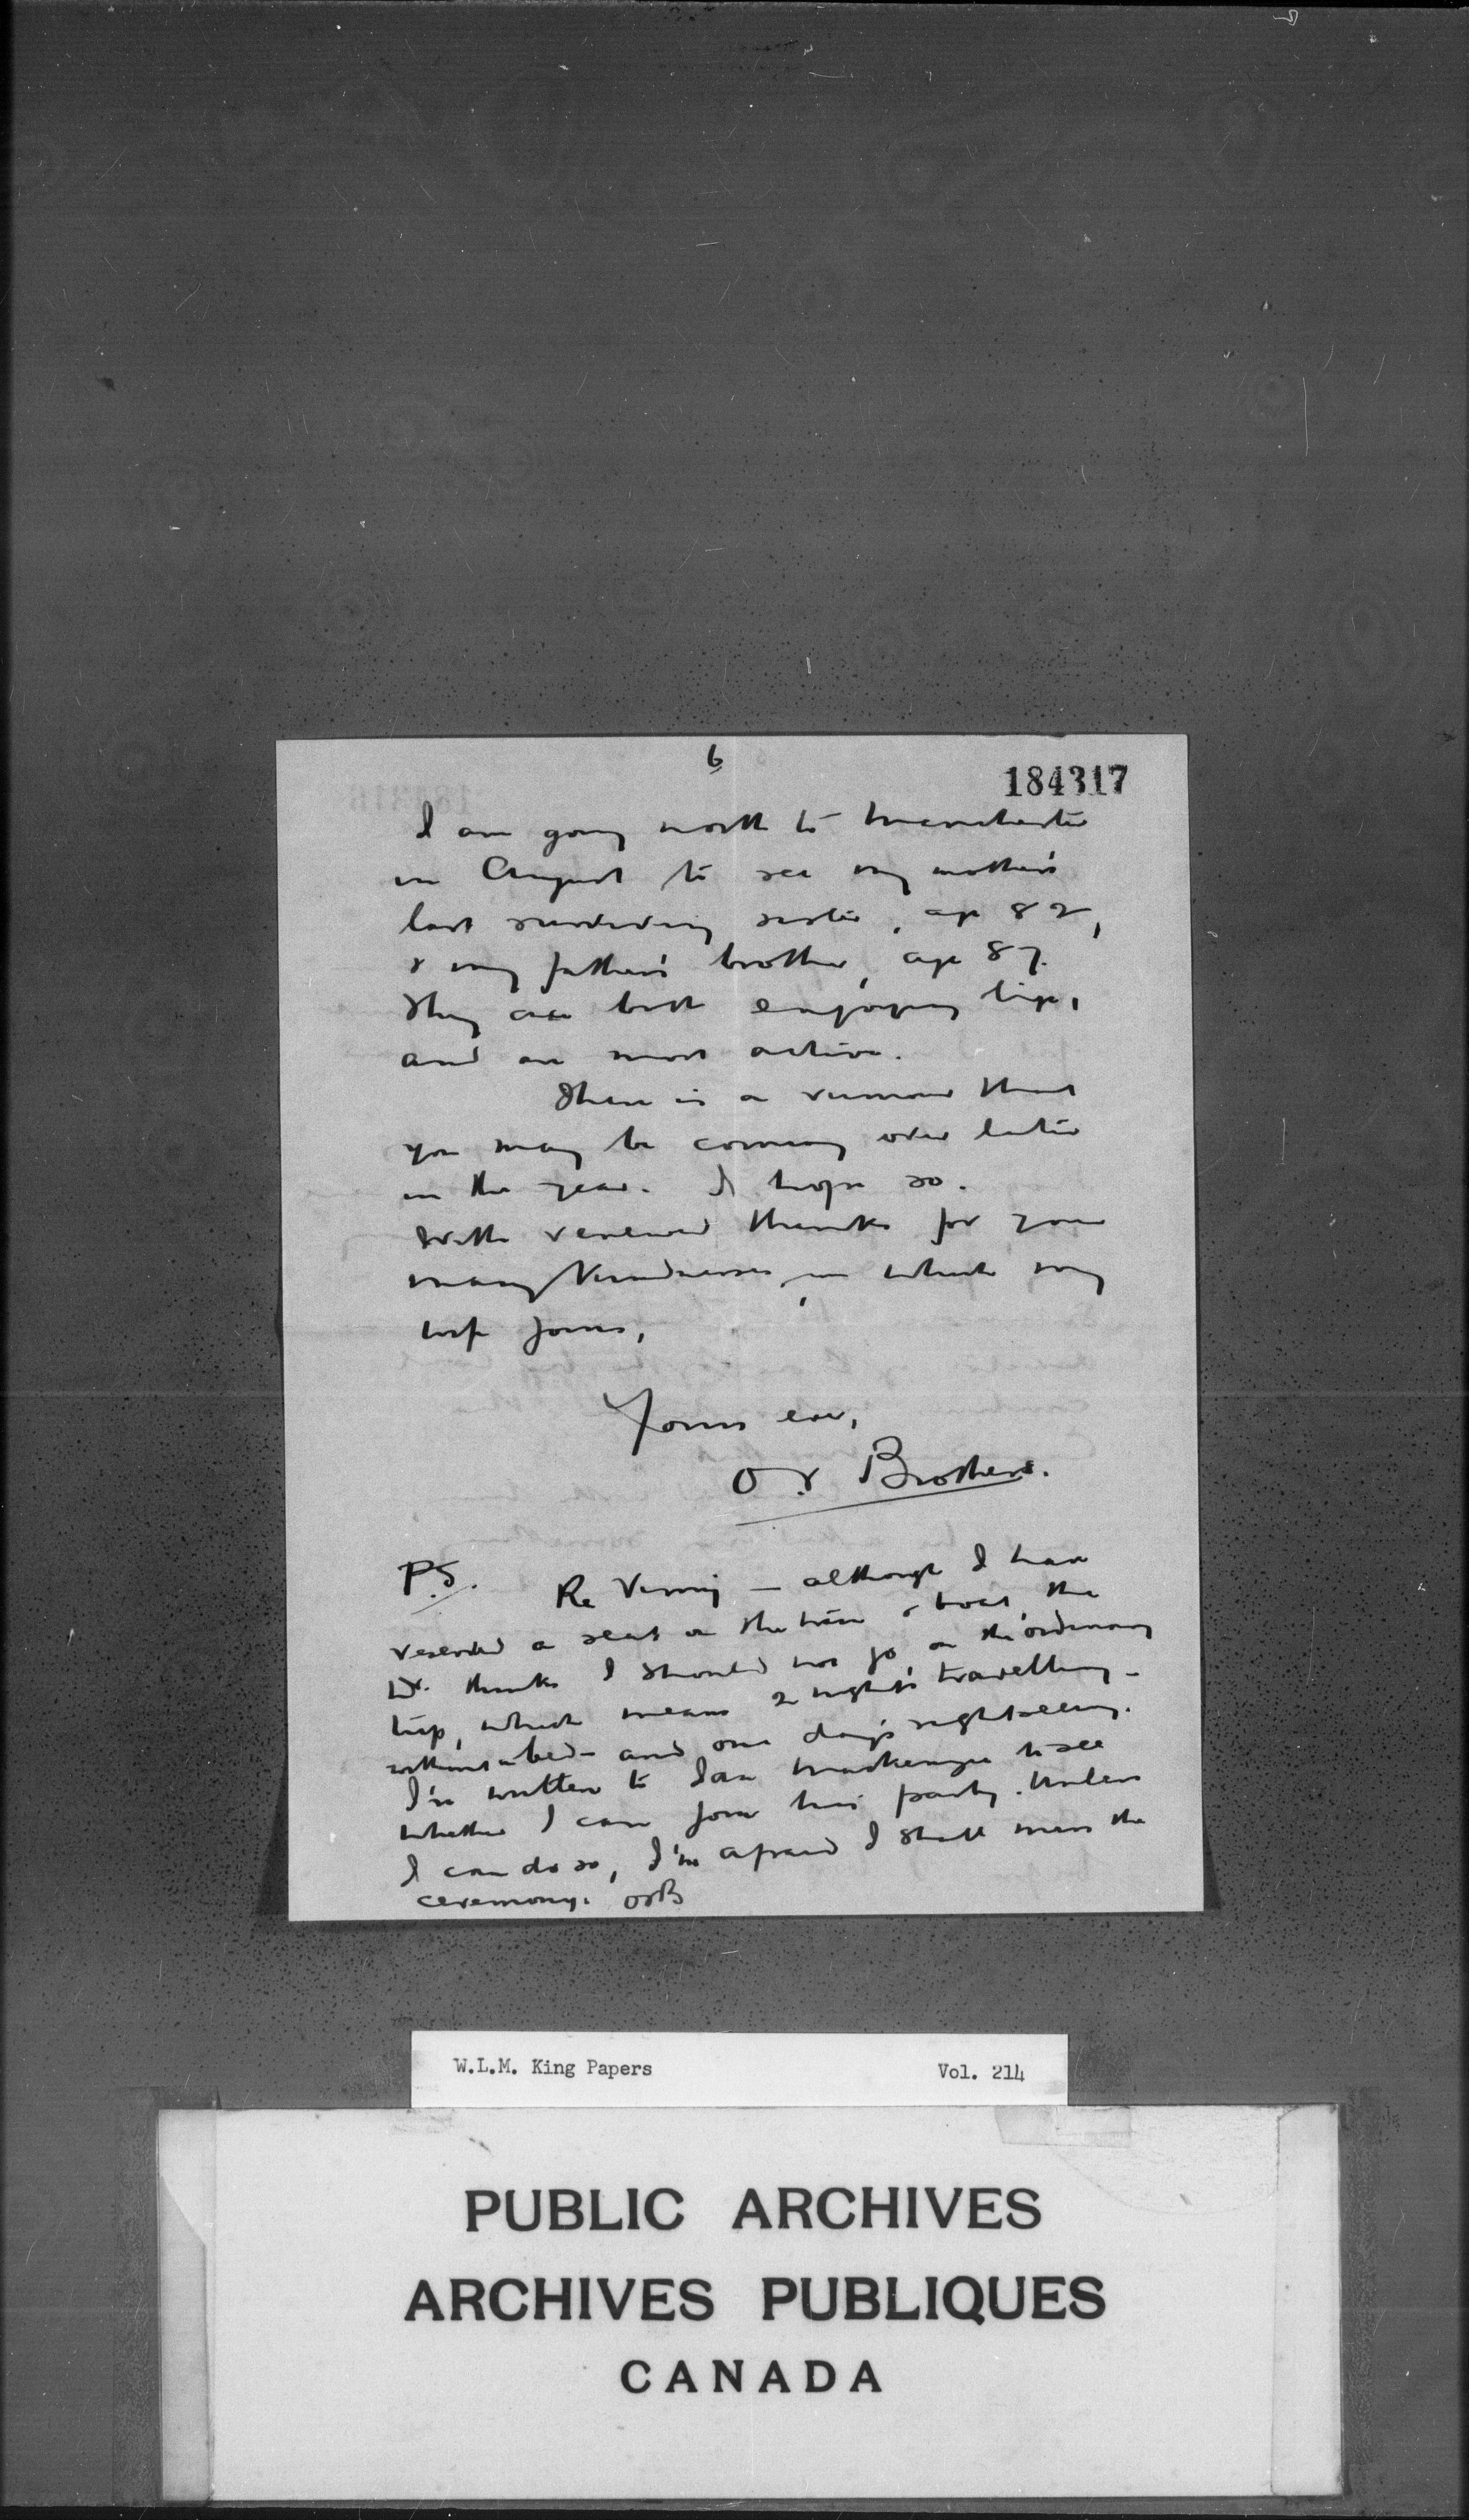 6
184317
I am going north to Manchester
in August to see my mother's
last surviving sister, age 82,
& my father's brother, age 87.
They are both enjoying life,
and are most active.
There is a rumour that
you may be coming over later
in the year. I hope so.
With renewed thanks for your
many kindnesses, in which my
wife joins,
Yours ever,
O.S. Brothers.
P.S. Re Vimy — although I have
reserved a seat on the train & boat, the
Dr. thinks I should not go on the ordinary
trip, which means 2 nights travelling -
without a bed - and one day's sightseeing.
I've written to Ian Mackenzie to see
whether I can join his party. Unless
I can do so, I'm afraid I shall miss the
ceremony. OSB
W.L.M. King Papers Vol. 214
PUBLIC ARCHIVES
ARCHIVES PUBLIQUES
CANADA